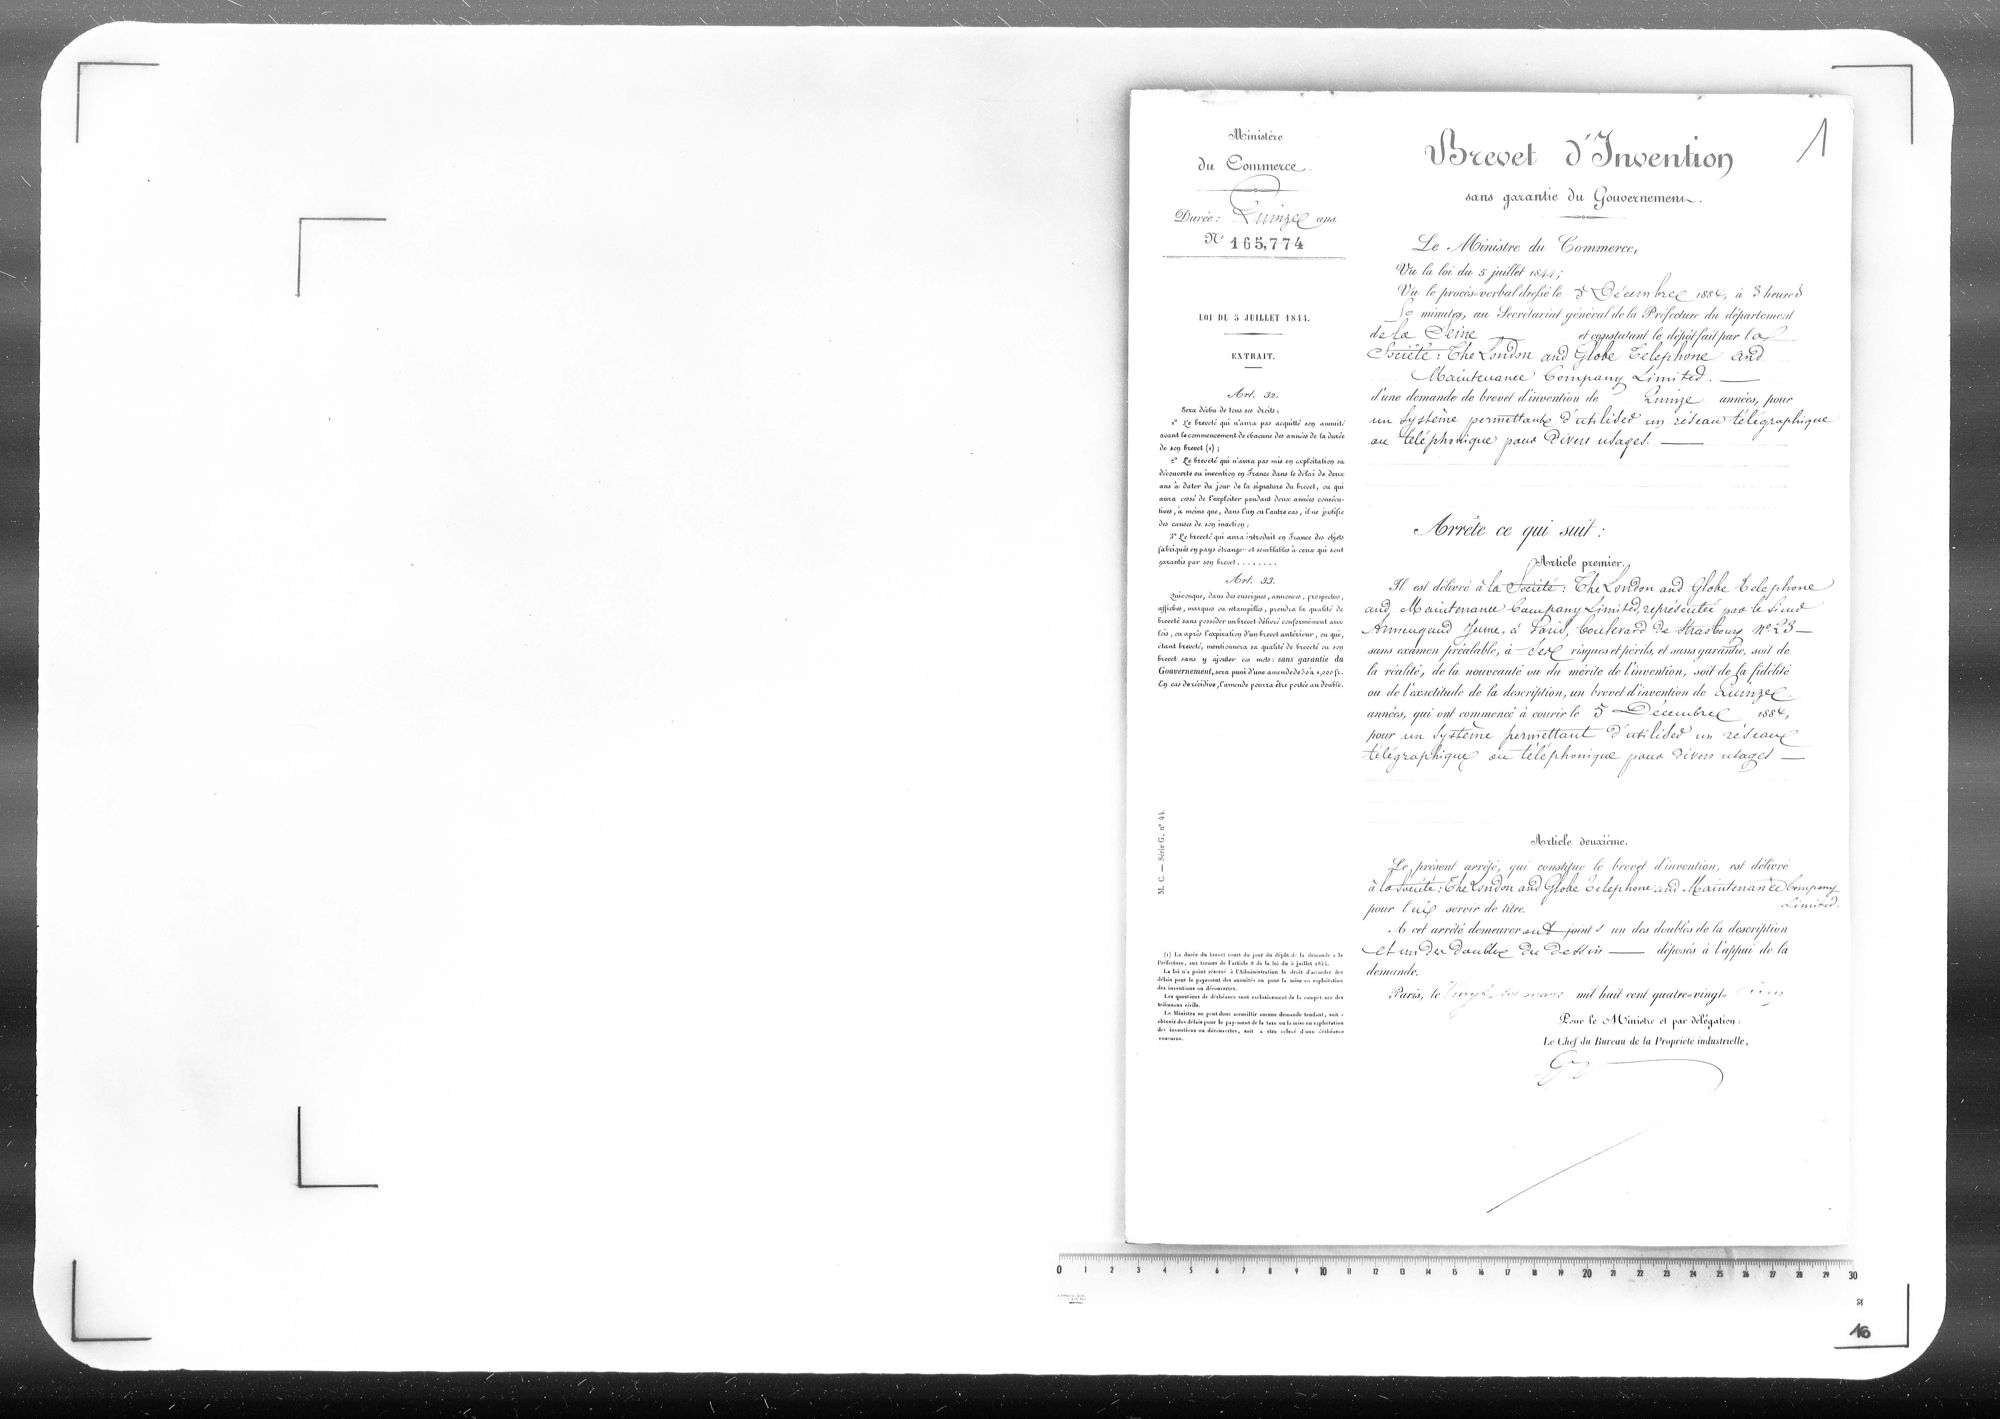 Ministère
du Commerce.
Durée : Quinze ans.
N° 165,774
LOI DU 5 JUILLET 1844.
EXTRAIT.
Art. 32.
Sera déchu de tous ses droits :
1° Le breveté qui n'aura pas acquitté son annuité
avant le commencement de chacune des années de la durée
de son brevet (1) ;
2° Le breveté qui n'aura pas mis en exploitation sa
découverte ou invention en France dans le délai de deux
ans à dater du jour de la signature du brevet, ou qui
aura cessé de l'exploiter pendant deux années consécu-
tives, à moins que, dans l'un ou l'autre cas, il ne justifie
des causes de son inaction ;
3° Le breveté qui aura introduit en France des objets
fabriqués en pays étranger et semblables à ceux qui sont
garantis par son brevet........
Art. 33.
Quiconque, dans des enseignes, annonces, prospectus,
affiches, marques ou estampilles, prendra la qualité de
breveté sans posséder un brevet délivré conformément aux
lois, ou après l'expiration d'un brevet antérieur, ou qui,
étant breveté, mentionnera sa qualité de breveté ou son
brevet sans y ajouter ces mots : sans garantie du
Gouvernement, sera puni d'une amende de 50 à 1,000 fr.
En cas de récidive, l'amende pourra être portée au double.
M. C. — Série G, n° 44.
(1) La durée du brevet court du jour du dépôt de la demande à la
Préfecture, aux termes de l'article 8 de la loi du 5 juillet 1844.
La loi n'a point réservé à l'Administration le droit d'accorder des
délais pour le payement des annuités ou pour la mise en exploitation
des inventions ou découvertes.
Les questions de déchéance sont exclusivement de la compétence des
tribunaux civils.
Le Ministre ne peut donc accueillir aucune demande tendant, soit à
obtenir des délais pour le payement de la taxe ou la mise en exploitation
des inventions ou découvertes, soit à être relevé d'une déchéance
encourue.
1
Brevet d'Invention
sans garantie du Gouvernement.
Le Ministre du Commerce,
Vu la loi du 5 juillet 1844 ;
Vu le procès-verbal dressé le 5 Décembre 1884, à 3 heures
50 minutes, au Secrétariat général de la Préfecture du département
de la Seine et constatant le dépôt fait par la
Société : The London and Globe Telephone and
Maintenance Company Limited. —
d'une demande de brevet d'invention de Quinze années, pour
un système permettant d'utiliser un réseau télégraphique
ou téléphonique pour divers usages. —
Arrête ce qui suit :
Article premier.
Il est délivré à la Société : The London and Globe Telephone
and Maintenance Company Limited, représentée par le sieur
Armengaud Jeune, à Paris, boulevard de Strasbourg n° 23 —
sans examen préalable, à ses risques et périls, et sans garantie, soit de
la réalité, de la nouveauté ou du mérite de l'invention, soit de la fidélité
ou de l'exactitude de la description, un brevet d'invention de Quinze
années, qui ont commencé à courir le 5 Décembre 1884,
pour un système permettant d'utiliser un réseau
télégraphique ou téléphonique pour divers usages —
Article deuxième.
Le présent arrêté, qui constitue le brevet d'invention, est délivré
à la Société : The London and Globe Telephone and Maintenance Company
Limited.
pour lui servir de titre.
A cet arrêté demeureront joints un des doubles de la description
et un des doubles du dessin — déposés à l'appui de la
demande.
Paris, le Vingt mars mil huit cent quatre-vingt-cinq
Pour le Ministre et par délégation :
Le Chef du Bureau de la Propriété industrielle,
0 1 2 3 4 5 6 7 8 9 10 11 12 13 14 15 16 17 18 19 20 21 22 23 24 25 26 27 28 29 30
16